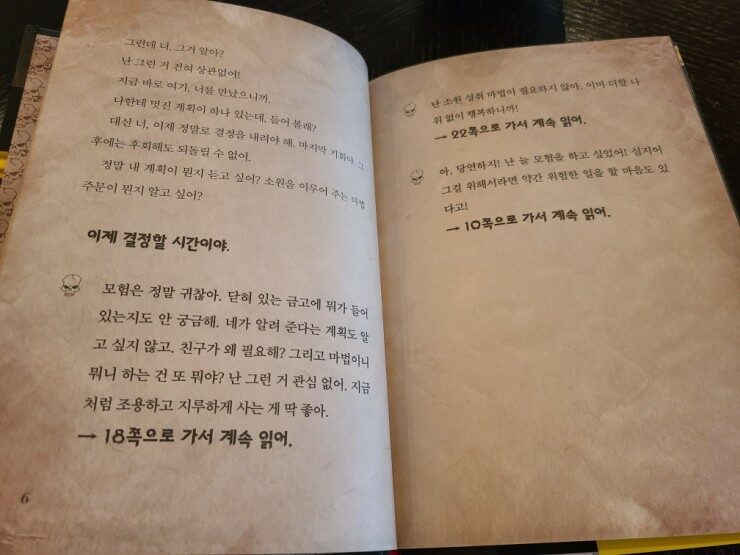 그런데 너, 그거 알아?
난 그런 거 전혀 상관없어!
지금 바로 여기, 너를 만났으니까.
나한테 멋진 계획이 하나 있는데, 들어 볼래?
대신 너, 이제 정말로 결정을 내려야 해. 마지막 기회야. 그
후에는 후회해도 되돌릴 수 없어.
정말 내 계획이 뭔지 듣고 싶어? 소원을 이루어 주는 마법
주문이 뭔지 알고 싶어?
이제 결정할 시간이야.
모험은 정말 귀찮아. 닫혀 있는 금고에 뭐가 들어
있는지도 안 궁금해. 네가 알려 준다는 계획도 알
고 싶지 않고. 친구가 왜 필요해? 그리고 마법이니
뭐니 하는 건 또 뭐야? 난 그런 거 관심 없어. 지금
처럼 조용하고 지루하게 사는 게 딱 좋아.
→ 18쪽으로 가서 계속 읽어.
6
난 소원 성취 마법이 필요하지 않아. 이미 더할 나
위 없이 행복하니까!
→ 22쪽으로 가서 계속 읽어.
아, 당연하지! 난 늘 모험을 하고 싶었어! 심지어
그걸 위해서라면 약간 위험한 일을 할 마음도 있
다고!
→ 10쪽으로 가서 계속 읽어.